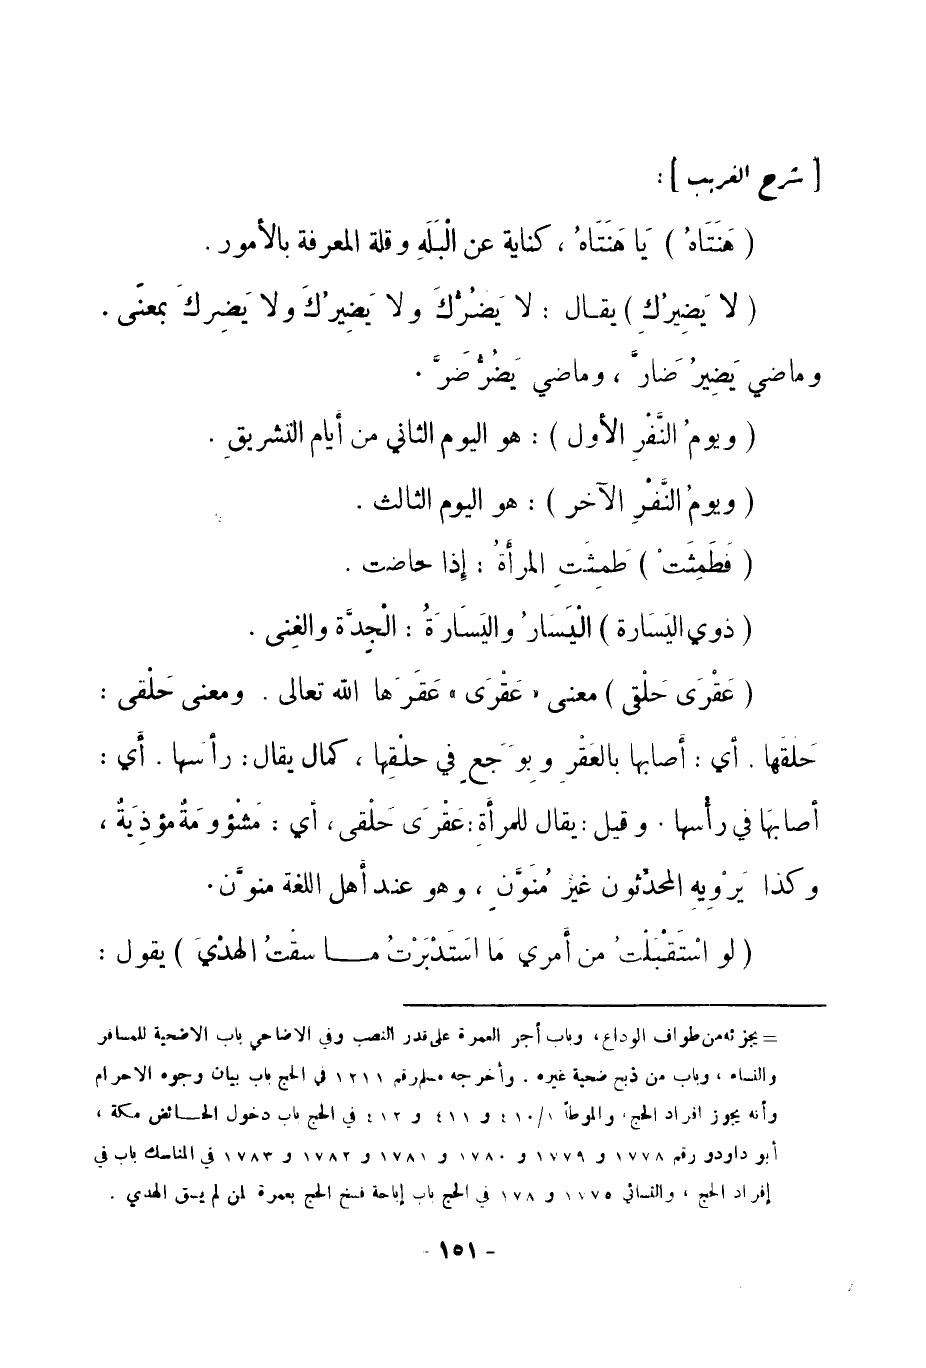 [ شرح الغريب ] :
( هَنَتَاهُ ) يَا هَنَتَاهُ ، كناية عن الْبَلَهِ وقلة المعرفة بالأمور .
( لا يَضِيرُكِ ) يقال : لا يَضُرُّكَ ولا يَضِيرُكَ ولا يَضِركَ بمعنًى .
وماضي يَضِيرُ ضَارَّ ، وماضي يَضُرُّ ضَرَّ .
( ويومُ النَّفْرِ الأول ) : هو اليوم الثاني من أيام التشريقِ .
( ويومُ النَّفْرِ الآخر ) : هو اليوم الثالث .
( فَطَمِثَتْ ) طَمِثَتِ المرأَةُ : إِذا حاضت .
( ذوي اليَسَارة ) الْيَسَارُ واليَسَارَةُ : الْجِدَّة والغِنى .
( عَقْرَى حَلْقى ) معنى « عَقْرَى » عَقَرَها الله تعالى . ومعنى حَلْقى :
حَلَقَها . أي : أصابها بالعَقْرِ وبِوَجَعٍ في حلْقِها ، كمال يقال : رأَسها . أي :
أصابَهَا في رأْسها . وقيل : يقال للمرأَةِ : عَقْرَى حَلْقى ، أي : مَشْؤومَةٌ مؤذِيَةٌ ،
وكذا يَرْوِيهِ المحدِّثون غيرَ مُنَوَّنٍ ، وهو عند أهل اللغة منوَّن .
( لو اسْتَقْبَلْتُ من أمري مَا اسْتَدْبَرْتُ مـــا سقْتُ الهدْيَ ) يقول :
= يجزئه من طواف الوداع ، وباب أجر العمرة على قدر النصب وفي الاضاحي باب الاضحية للمسافر
والنساء ، وباب من ذبح ضحية غيره . وأخرجه مسلم رقم ١٢١١ في الحج باب بيان وجوه الاحرام
وأنه يجوز افراد الحج ، والموطأ ٤١٠/١ و ٤١١ و ٤١٢ في الحج باب دخول الحـــائض مكة ،
أبو داودو رقم ١٧٧٨ و ١٧٧٩ و ١٧٨٠ و ١٧٨١ و ١٧٨٢ و ١٧٨٣ في المناسك باب في
إفراد الحج ، والنسائي ١٧٧/٥ و ١٧٨ في الحج باب إباحة فسخ الحج بعمرة لمن لم يسق الهدي .
- ١٥١ -